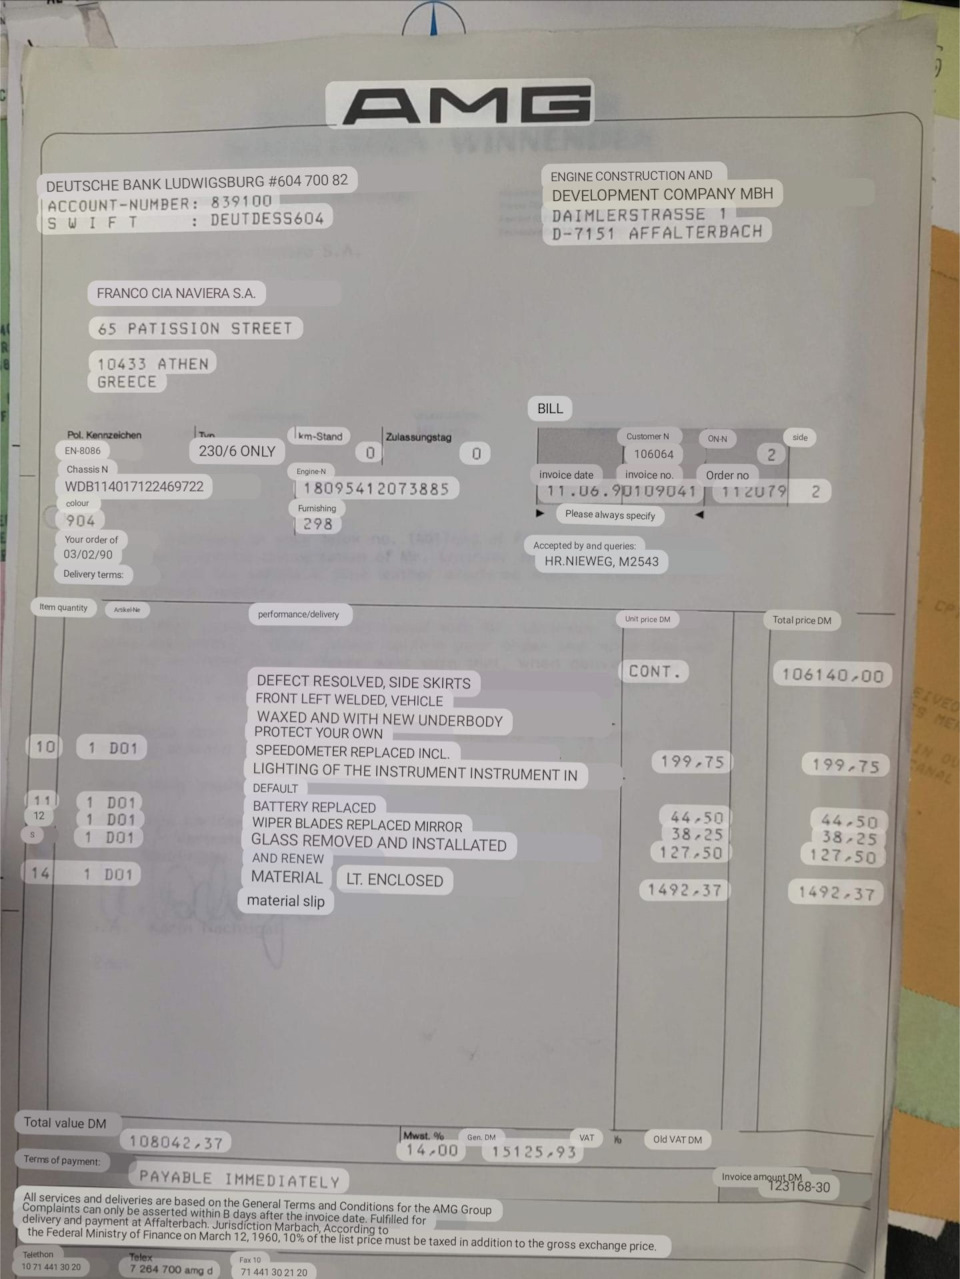 AMG
DEUTSCHE BANK LUDWIGSBURG #604 700 82
ACCOUNT-NUMBER: 839100
S W I F T : DEUTDESS604
ENGINE CONSTRUCTION AND
DEVELOPMENT COMPANY MBH
DAIMLERSTRASSE 1
D-7151 AFFALTERBACH
FRANCO CIA NAVIERA S.A.
65 PATISSION STREET
10433 ATHEN
GREECE
BILL
Pol. Kennzeichen Typ km-Stand Zulassungstag
EN-8086 230/6 ONLY 0 0
Customer N ON-N side
106064 2
Chassis N Engine-N
WDB114017122469722 18095412073885
invoice date invoice no. Order no
11.06.90109041 112079 2
colour Furnishing
904 298
Please always specify
Your order of
03/02/90
Delivery terms:
Accepted by and queries:
HR.NIEWEG, M2543
Item quantity Artikel-Nr performance/delivery Unit price DM Total price DM
CONT. 106140,00
DEFECT RESOLVED, SIDE SKIRTS
FRONT LEFT WELDED, VEHICLE
WAXED AND WITH NEW UNDERBODY
PROTECT YOUR OWN
10 1 D01 SPEEDOMETER REPLACED INCL. 199,75 199,75
LIGHTING OF THE INSTRUMENT INSTRUMENT IN
DEFAULT
11 1 D01 BATTERY REPLACED 44,50 44,50
12 1 D01 WIPER BLADES REPLACED MIRROR 38,25 38,25
s 1 D01 GLASS REMOVED AND INSTALLATED 127,50 127,50
AND RENEW
14 1 D01 MATERIAL LT. ENCLOSED 1492,37 1492,37
material slip
Total value DM Mwst. % Gen. DM VAT % Old VAT DM
108042,37 14,00 15125,93
Terms of payment: Invoice amount DM
PAYABLE IMMEDIATELY 123168-30
All services and deliveries are based on the General Terms and Conditions for the AMG Group
Complaints can only be asserted within B days after the invoice date. Fulfilled for
delivery and payment at Affalterbach. Jurisdiction Marbach, According to
the Federal Ministry of Finance on March 12, 1960, 10% of the list price must be taxed in addition to the gross exchange price.
Telethon Telex Fax 10
10 71 441 30 20 7 264 700 amg d 71 441 30 21 20